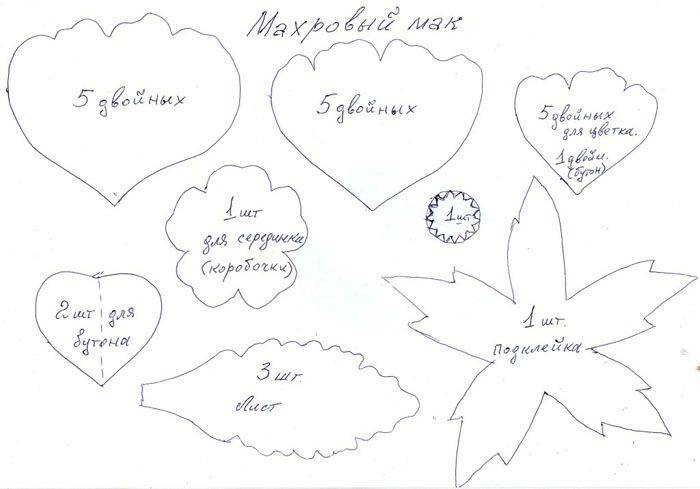 Махровый мак
5 двойных
5 двойных
5 двойных
для цветка.
1 двойн.
(бутон)
1 шт
для серединка
(коробочки)
1 шт.
2 шт для
бутона
1 шт.
подклейка
3 шт.
Лист